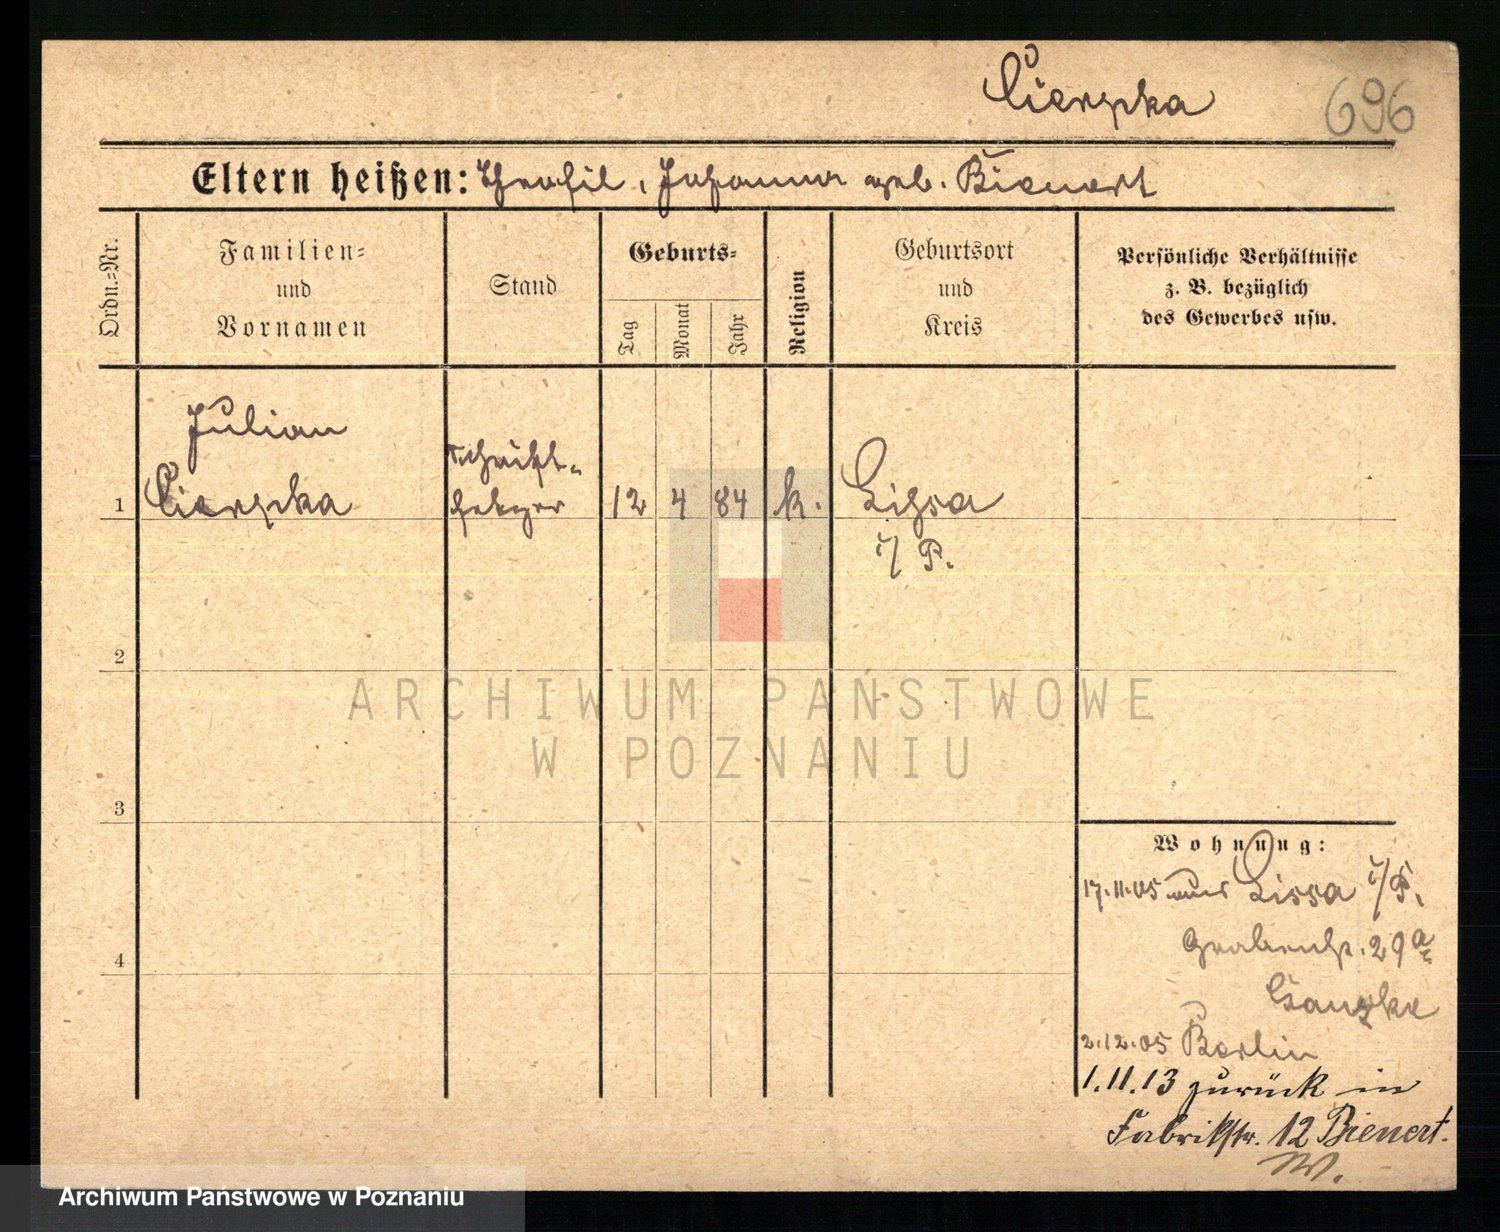 Cierpka
696
Eltern heißen: Theofil, Johanna geb. Bienert
Ordn.-Nr.
Familien-
und
Vornamen
Stand
Geburts-
Tag
Monat
Jahr
Religion
Geburtsort
und
Kreis
Persönliche Verhältnisse
z. B. bezüglich
des Gewerbes usw.
Julian
Cierpka
Schrift-
setzer
1
12
4
84
k.
Lissa
i/P.
2
ARCHIWUM PAŃSTWOWE
W POZNANIU
3
4
Wohnung:
17.11.05 aus Lissa i/P.
Grabenstr. 29a
2.12.05 Berlin
1.11.13 zurück in
Fabrikstr. 12 Bienert.
W.
Archiwum Państwowe w Poznaniu